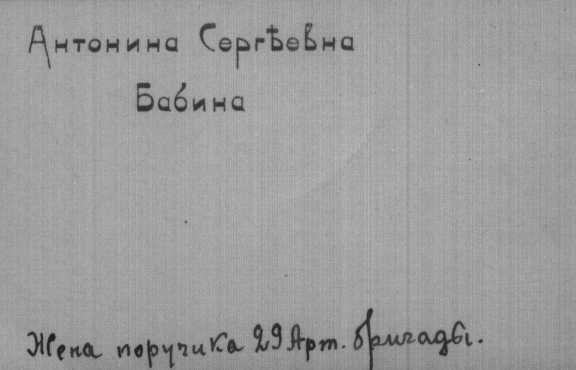 Антонина Сергѣевна
Бабина
Жена поручика 29 Арт. бригады.